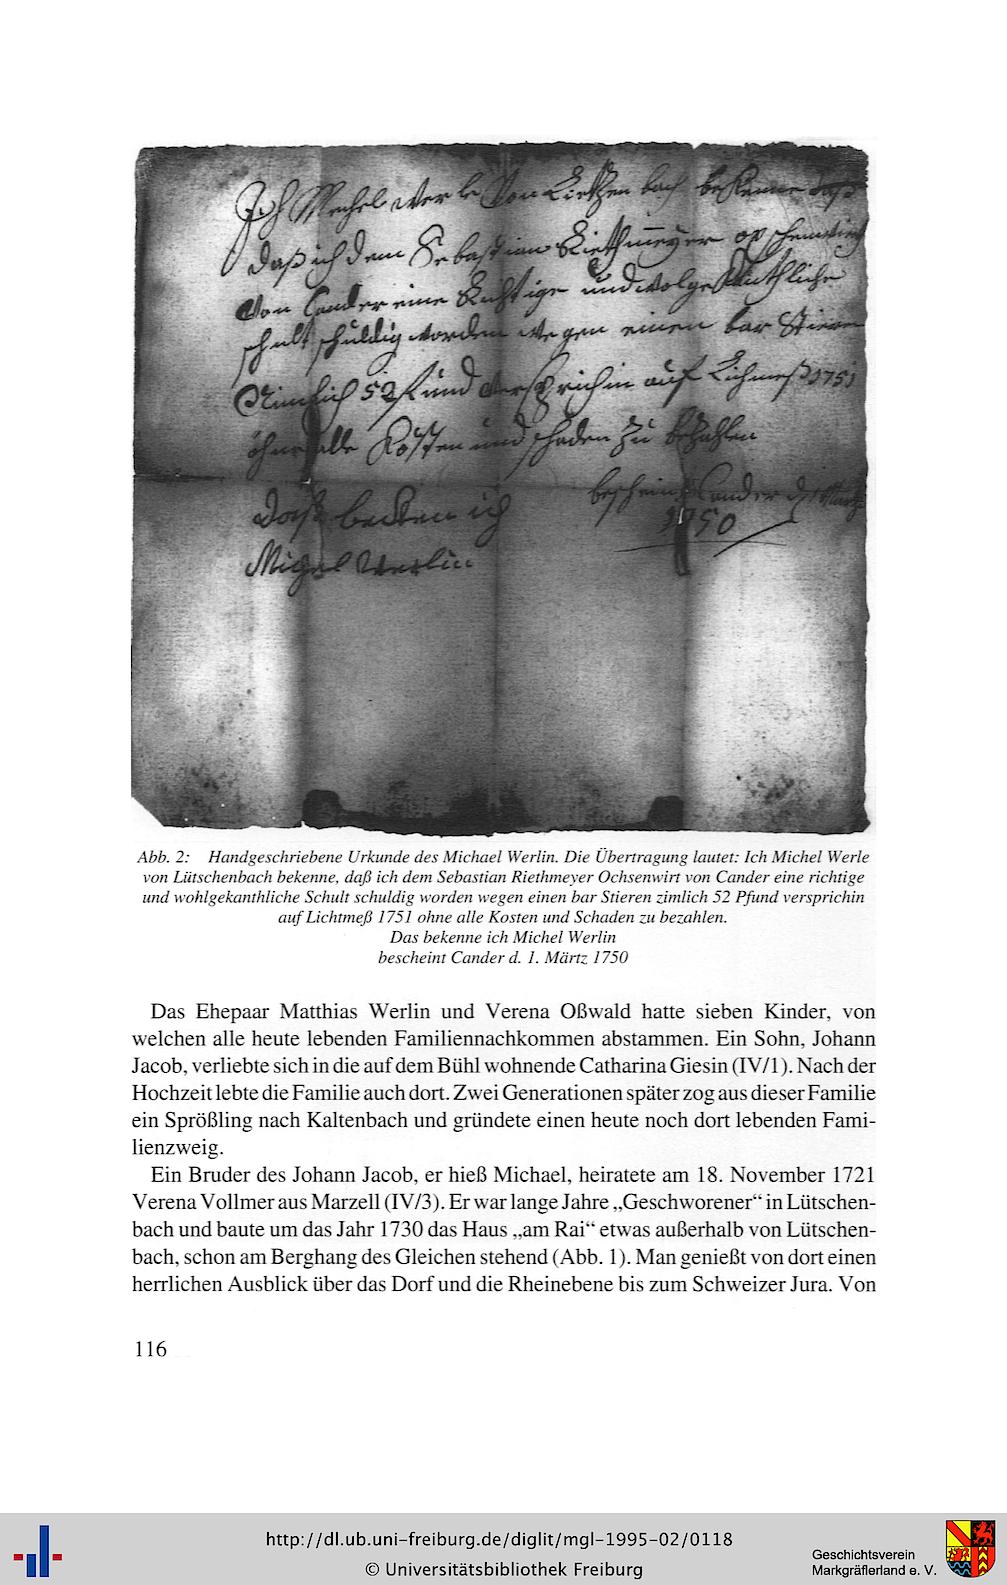 Ich Mechel Werle Von Lietschen bach bekenne daß
daß ich dem Sebastian Riethmeyer
Von Cander eine Richtige und wolgekanthliche
schult schuldig worden wegen einen bar Stieren
52 und versprichin auf Lichmeß 1751
ohne alle Kosten und schaden zu bezahlen
bescheint Cander d
daß ich
1750
Michel Werlin
Abb. 2: Handgeschriebene Urkunde des Michael Werlin. Die Übertragung lautet: Ich Michel Werle
von Lütschenbach bekenne, daß ich dem Sebastian Riethmeyer Ochsenwirt von Cander eine richtige
und wohlgekanthliche Schult schuldig worden wegen einen bar Stieren zimlich 52 Pfund versprichin
auf Lichtmeß 1751 ohne alle Kosten und Schaden zu bezahlen.
Das bekenne ich Michel Werlin
bescheint Cander d. 1. Märtz 1750
Das Ehepaar Matthias Werlin und Verena Oßwald hatte sieben Kinder, von
welchen alle heute lebenden Familiennachkommen abstammen. Ein Sohn, Johann
Jacob, verliebte sich in die auf dem Bühl wohnende Catharina Giesin (IV/1). Nach der
Hochzeit lebte die Familie auch dort. Zwei Generationen später zog aus dieser Familie
ein Sprößling nach Kaltenbach und gründete einen heute noch dort lebenden Fami-
lienzweig.
Ein Bruder des Johann Jacob, er hieß Michael, heiratete am 18. November 1721
Verena Vollmer aus Marzell (IV/3). Er war lange Jahre „Geschworener“ in Lütschen-
bach und baute um das Jahr 1730 das Haus „am Rai“ etwas außerhalb von Lütschen-
bach, schon am Berghang des Gleichen stehend (Abb. 1). Man genießt von dort einen
herrlichen Ausblick über das Dorf und die Rheinebene bis zum Schweizer Jura. Von
116
http://dl.ub.uni-freiburg.de/diglit/mgl-1995-02/0118
© Universitätsbibliothek Freiburg
Geschichtsverein
Markgräflerland e. V.